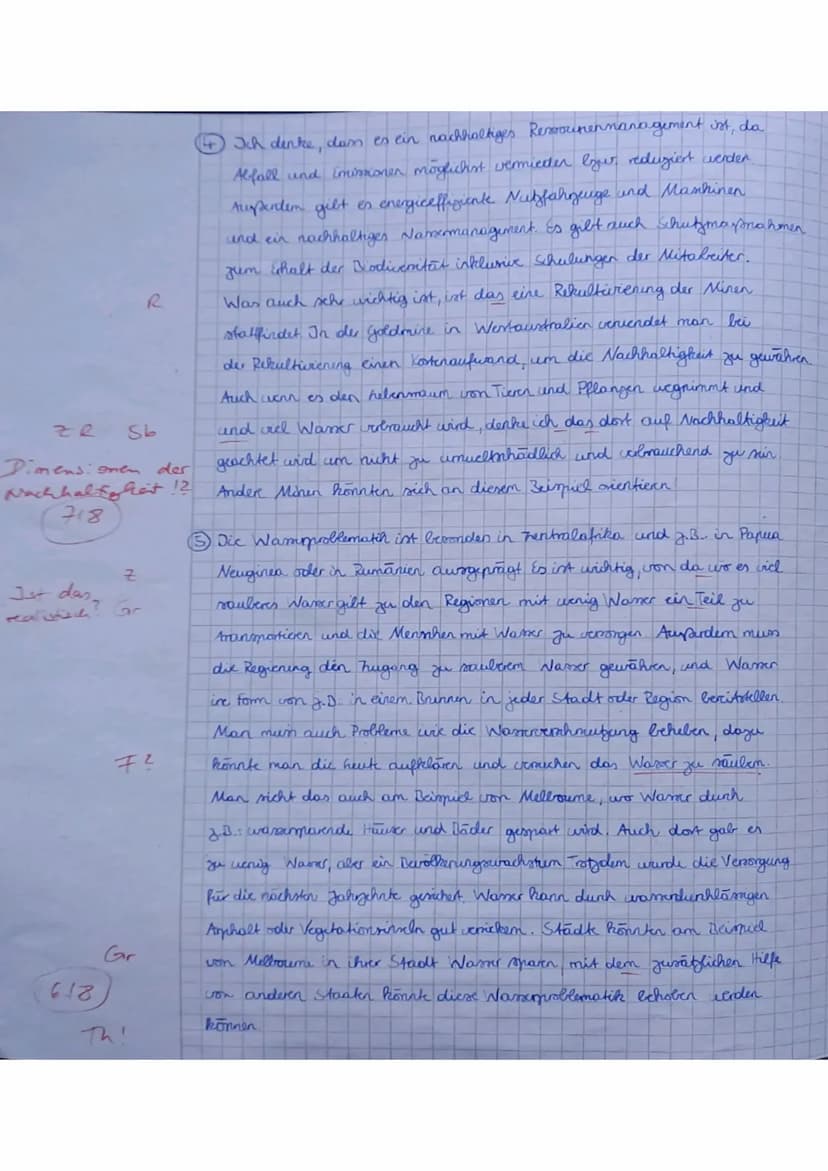 ④ Ich denke, dass es ein nachhaltiges Ressourcenmanagement ist, da
Abfall und Emissionen möglichst vermieden bzw. reduziert werden
Außerdem gilt es energieeffiziente Nutzfahrzeuge und Maschinen
und ein nachhaltiges Wassermanagement. Es gilt auch Schutzmaßnahmen
zum Erhalt der Biodiversität inklusive Schulungen der Mitarbeiter.
R Was auch sehr wichtig ist, ist das eine Rekultivierung der Minen
stattfindet. In der Goldmine in Westaustralien verwendet man bei
der Rekultivierung einen Kostenaufwand, um die Nachhaltigkeit zu gewähren
Auch wenn es den Lebensraum von Tieren und Pflanzen wegnimmt und
Z R Sb und viel Wasser verbraucht wird, denke ich das dort auf Nachhaltigkeit
Dimensionen der geachtet wird um nicht zu umweltschädlich und verbrauchend zu sein
Nachhaltigkeit !? Andere Minen könnten sich an diesem Beispiel orientieren
7/8
⑤ Die Wasserproblematik ist besonders in Zentralafrika und z.B. in Papua
Z Neuginea oder in Rumänien ausgeprägt Es ist wichtig, von da wo es viel
Ist das realistisch? Gr sauberes Wasser gilt zu den Regionen mit wenig Wasser ein Teil zu
transportieren und die Menschen mit Wasser zu versorgen. Außerdem muss
die Regierung den Zugang zu sauberem Wasser gewähren, und Wasser
in Form von z.B. in einem Brunnen in jeder Stadt oder Region bereitstellen.
Man muss auch Probleme wie die Wasserverschmutzung beheben, dazu
F? könnte man die Leute aufklären und versuchen das Wasser zu säubern.
Man sieht das auch am Beispiel von Melbourne, wo Wasser durch
z.B.: wassersparende Häuser und Bäder gespart wird. Auch dort gab es
zu wenig Wasser, aber ein Bevölkerungswachstum Trotzdem wurde die Versorgung
für die nächsten Jahrzehnte gesichert. Wasser kann durch wasserdurchlässigen
Asphalt oder Vegetationsinseln gut versickern. Städte könnten am Beispiel
Gr von Melbourne in ihrer Stadt Wasser sparen, mit dem zusätzlichen Hilfe
6/8 von anderen Staaten könnte diese Wasserproblematik behoben werden
Th! können